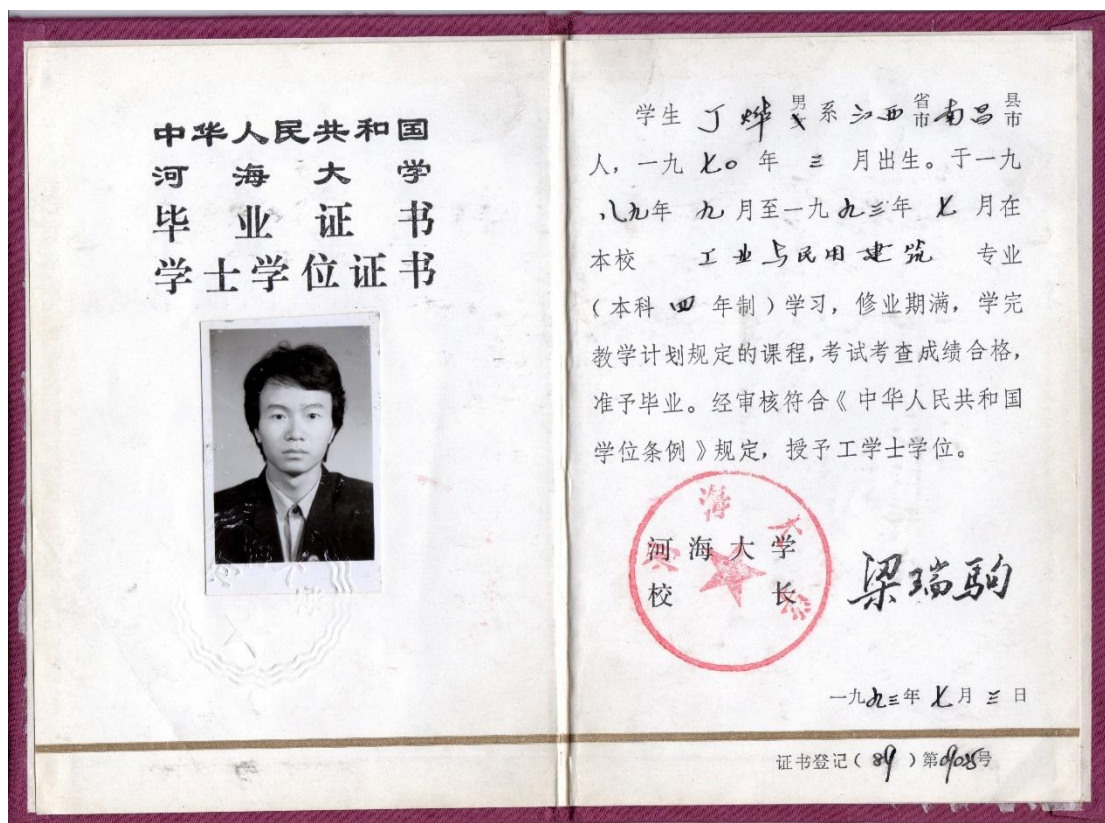 中华人民共和国
河海大学
毕业证书
学士学位证书
学生 丁烨 男 系 江西 省市 南昌 县市
人，一九七〇年 三 月出生。于一九
八九年 九 月至一九九三年 七 月在
本校 工业与民用建筑 专业
（本科 四 年制）学习，修业期满，学完
教学计划规定的课程，考试考查成绩合格，
准予毕业。经审核符合《中华人民共和国
学位条例》规定，授予工学士学位。
河海大学
河海大学
校长 梁瑞驹
一九九三年 七 月 三 日
证书登记（89）第 号